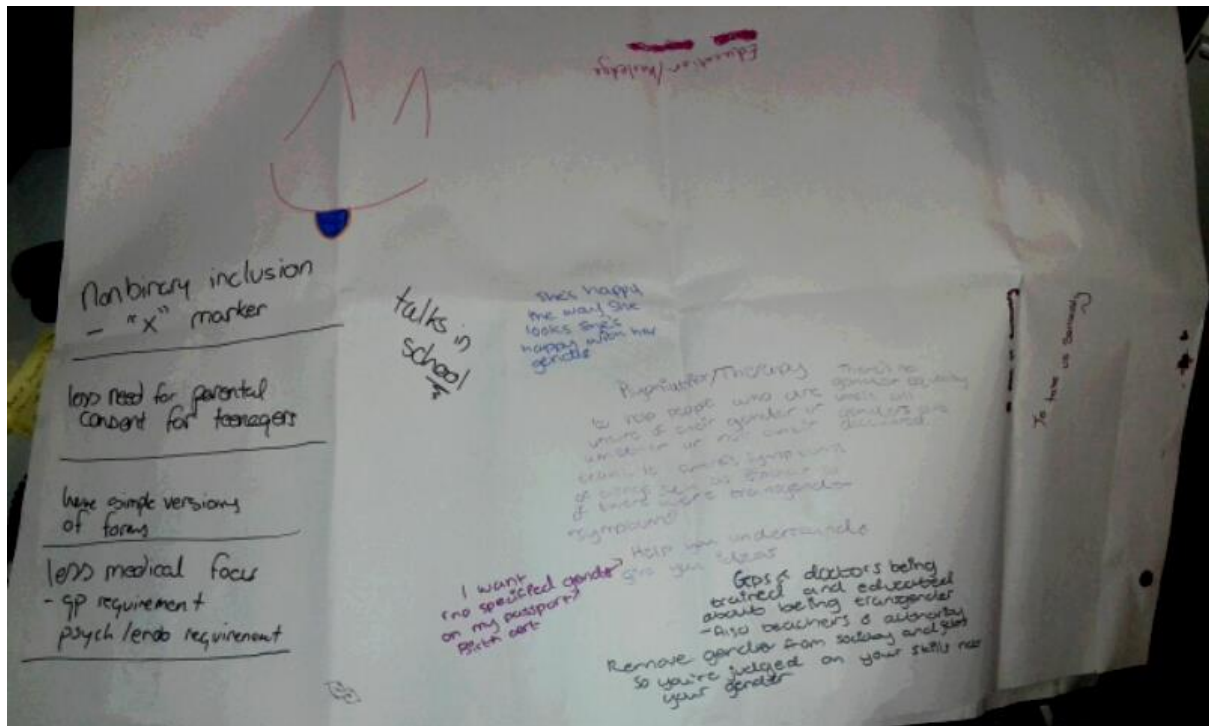 Education/knowledge
Nonbinary inclusion
- "X" marker
less need for parental
consent for teenagers
have simple versions
of forms
less medical focus
- GP requirement
psych/endo requirement
talks in
school
She's happy
the way she
looks she's
happy with her
genitals
/Therapy
to help people who are
of their gender or
or not
symptoms
of
transgender
symptoms
There's no
gender equality
until all
genders are
Help you understand &
give you ideas
I want
(no specified gender)
on my passport/
Birth cert.
GPs & doctors being
trained and educated
about being transgender
- Also teachers & authority
Remove gender from society and
so you're judged on your skills not
your gender
To take us seriously